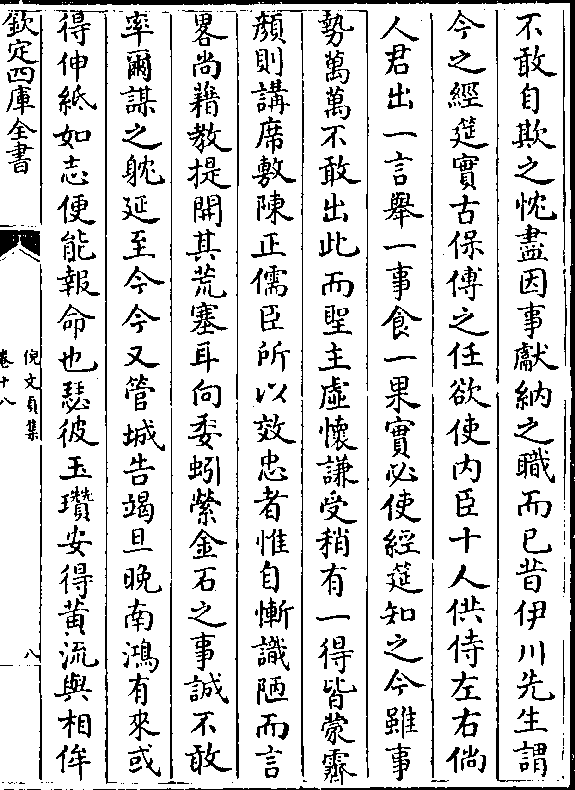 不敢自欺之忱盡因事獻納之職而已昔伊川先生謂
今之經筵實古保傅之任欲使内臣十人供侍左右倘
人君出一言舉一事食一果實必使經筵知之今雖事
勢萬萬不敢出此而聖主虛懷謙受稍有一得皆蒙霽
顔則講席敷陳正儒臣所以效忠者惟自慚識陋而言
畧尚藉教提開其荒塞耳向委蚓縈金石之事誠不敢
率爾謀之躭延至今今又管城告竭旦晚南鴻有來或
得伸紙如志便能報命也瑟彼玉瓚安得黄流與相侔
欽定四庫全書
倪文貞集
卷十八
八